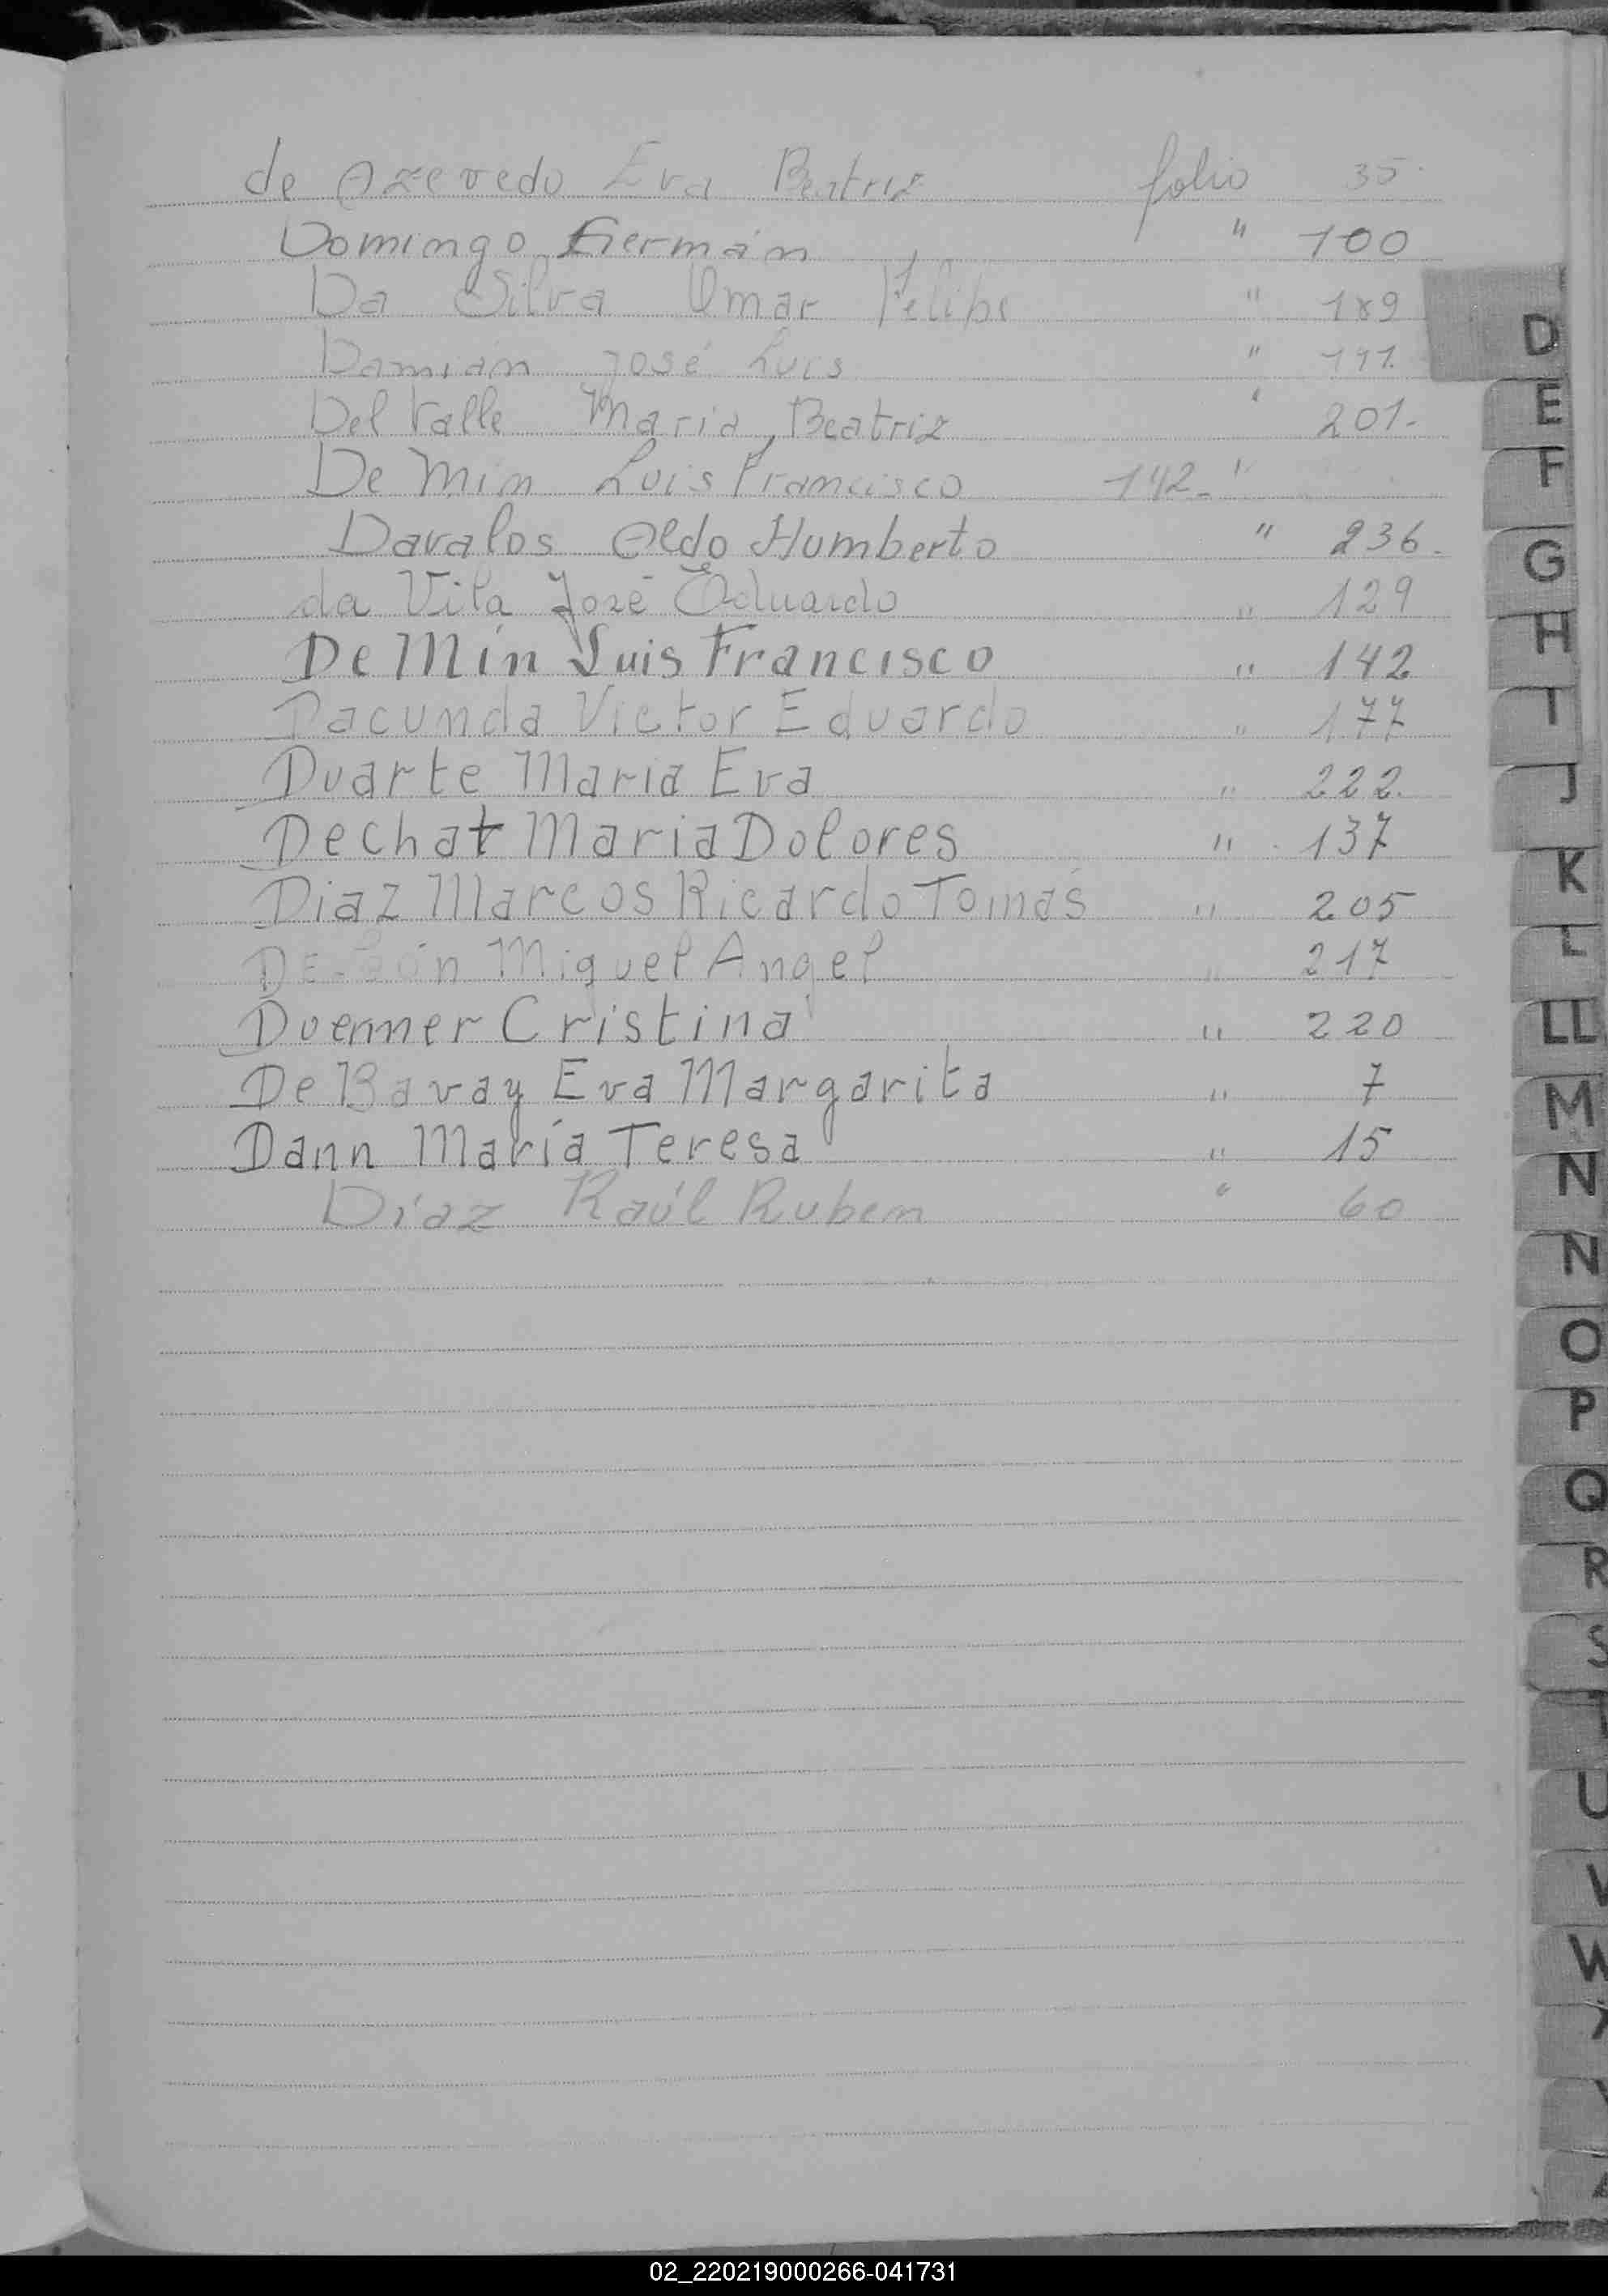 de Azevedo Eva Beatriz folio 35
Domingo Germán " 100
Da Silva Omar Felipe " 189
Damián José Luis " 191.
Del Valle Maria Beatriz " 201.
De Min Luis Francisco 142. "
Davalos Aldo Humberto " 236.
da Vila José Eduardo " 129
De Min Luis Francisco " 142
Dacunda Victor Eduardo " 177
Duarte Maria Eva " 222.
Dechat Maria Dolores " 137
Diaz Marcos Ricardo Tomás " 205
Miguel Angel " 217
Duenner Cristina " 220
De Bavay Eva Margarita " 7
Dann María Teresa " 15
Díaz Raúl Ruben " 60
D
E
F
G
H
I
J
K
L
LL
M
N
N
O
P
Q
R
S
T
U
V
W
X
02_220219000266-041731